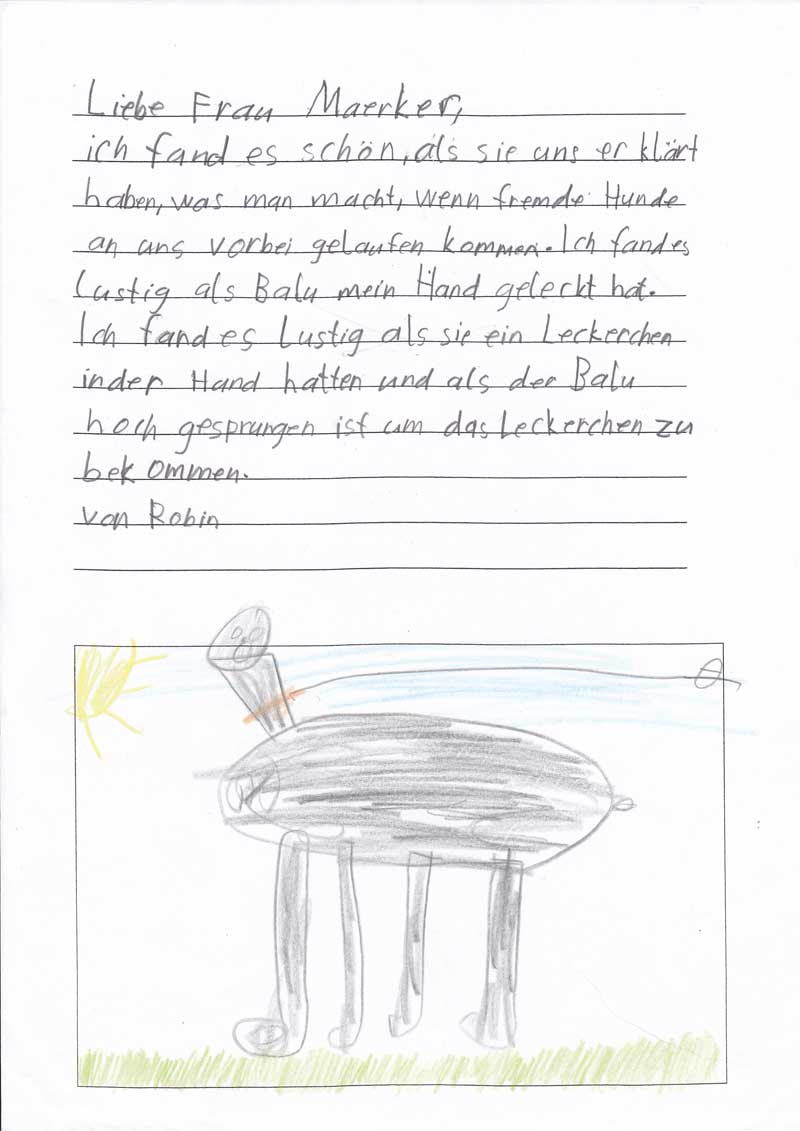 Liebe Frau Maerker,
ich fand es schön, als sie uns er klärt
haben, was man macht, wenn fremde Hunde
an uns vorbei gelaufen kommen. Ich fand es
Lustig als Balu mein Hand geleckt hat.
Ich fand es Lustig als sie ein Leckerchen
in der Hand hatten und als der Balu
hoch gesprungen ist um das Leckerchen zu
bek ommen.
von Robin